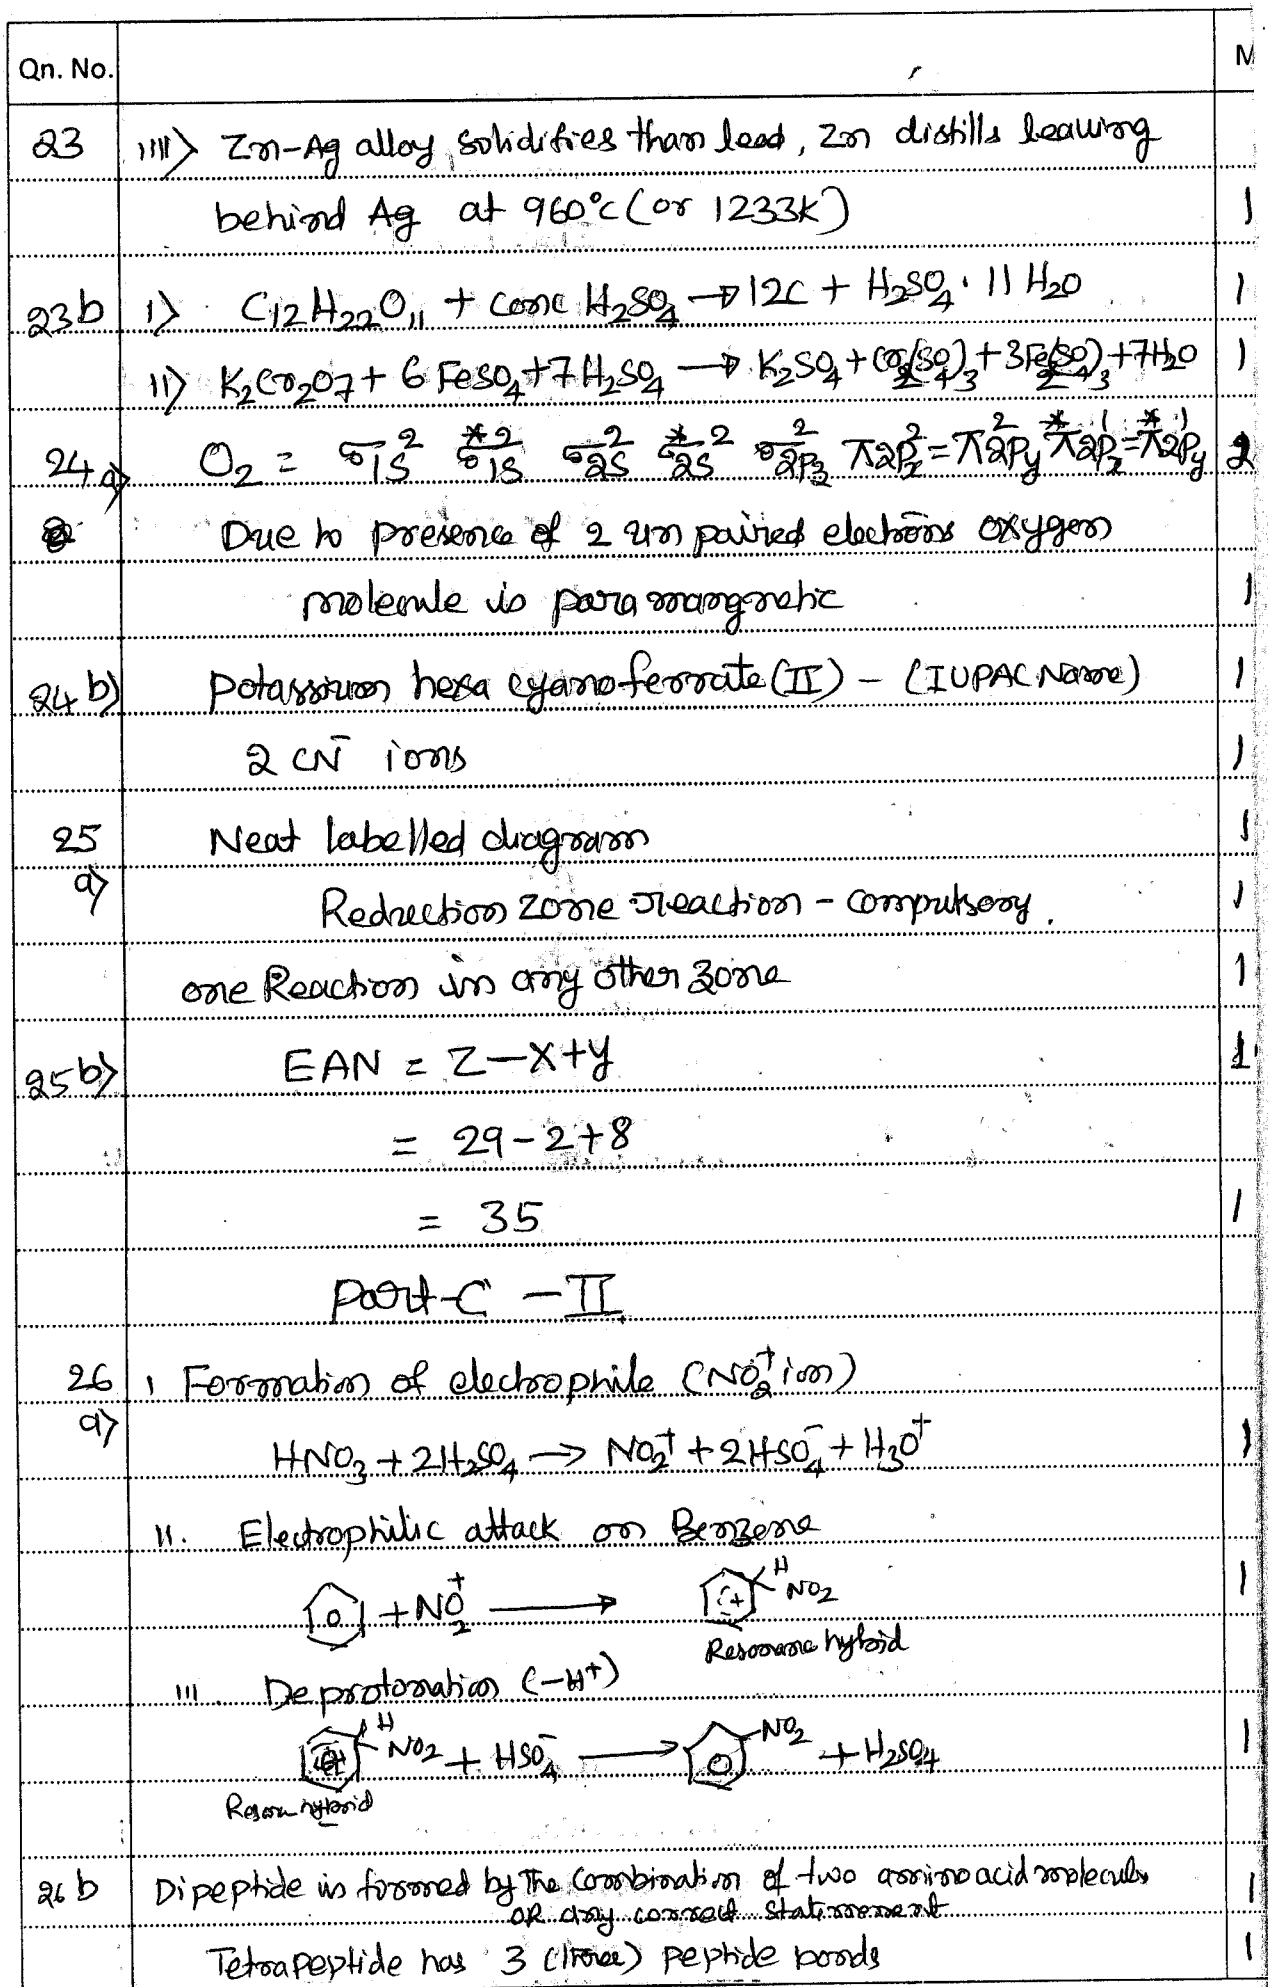 Qn. No. M
23 iiii) Zn-Ag alloy solidifies than lead, Zn distills leaving
behind Ag at 960°C (or 1233K) 1
23b i) C12H22O11 + conc H2SO4 → 12C + H2SO4 · 11 H2O 1
ii) K2Cr2O7 + 6 FeSO4 + 7H2SO4 → K2SO4 + Cr2(SO4)3 + 3Fe2(SO4)3 + 7H2O 1
24 a) O2 = σ1s² σ*1s² σ2s² σ*2s² σ2pz² π2px² = π2py² π*2px¹ = π*2py¹ 2
Due to presence of 2 un paired electrons oxygen
molecule is para mangnetic 1
24 b) potassium hexa cyano ferrate (II) - (IUPAC Name) 1
2 CN⁻ ions 1
25 Neat labelled diagram 1
a) Reduction zone reaction - compulsory. 1
one Reaction in any other zone 1
25 b) EAN = Z-X+Y 1
= 29-2+8
= 35 1
Part-C - II
26 i Formation of electrophile (NO2⁺ ion)
a) HNO3 + 2H2SO4 → NO2⁺ + 2HSO4⁻ + H3O⁺ 1
ii. Electrophilic attack on Benzene
+ NO2⁺ → H NO2 1
Resonance hybrid
iii. Deprotonation (-H⁺)
H NO2 + HSO4⁻ → NO2 + H2SO4 1
Reson hybrid
26 b Dipeptide is formed by the combination of two amino acid molecules 1
OR any correct statement
Tetrapeptide has 3 (three) peptide bonds 1